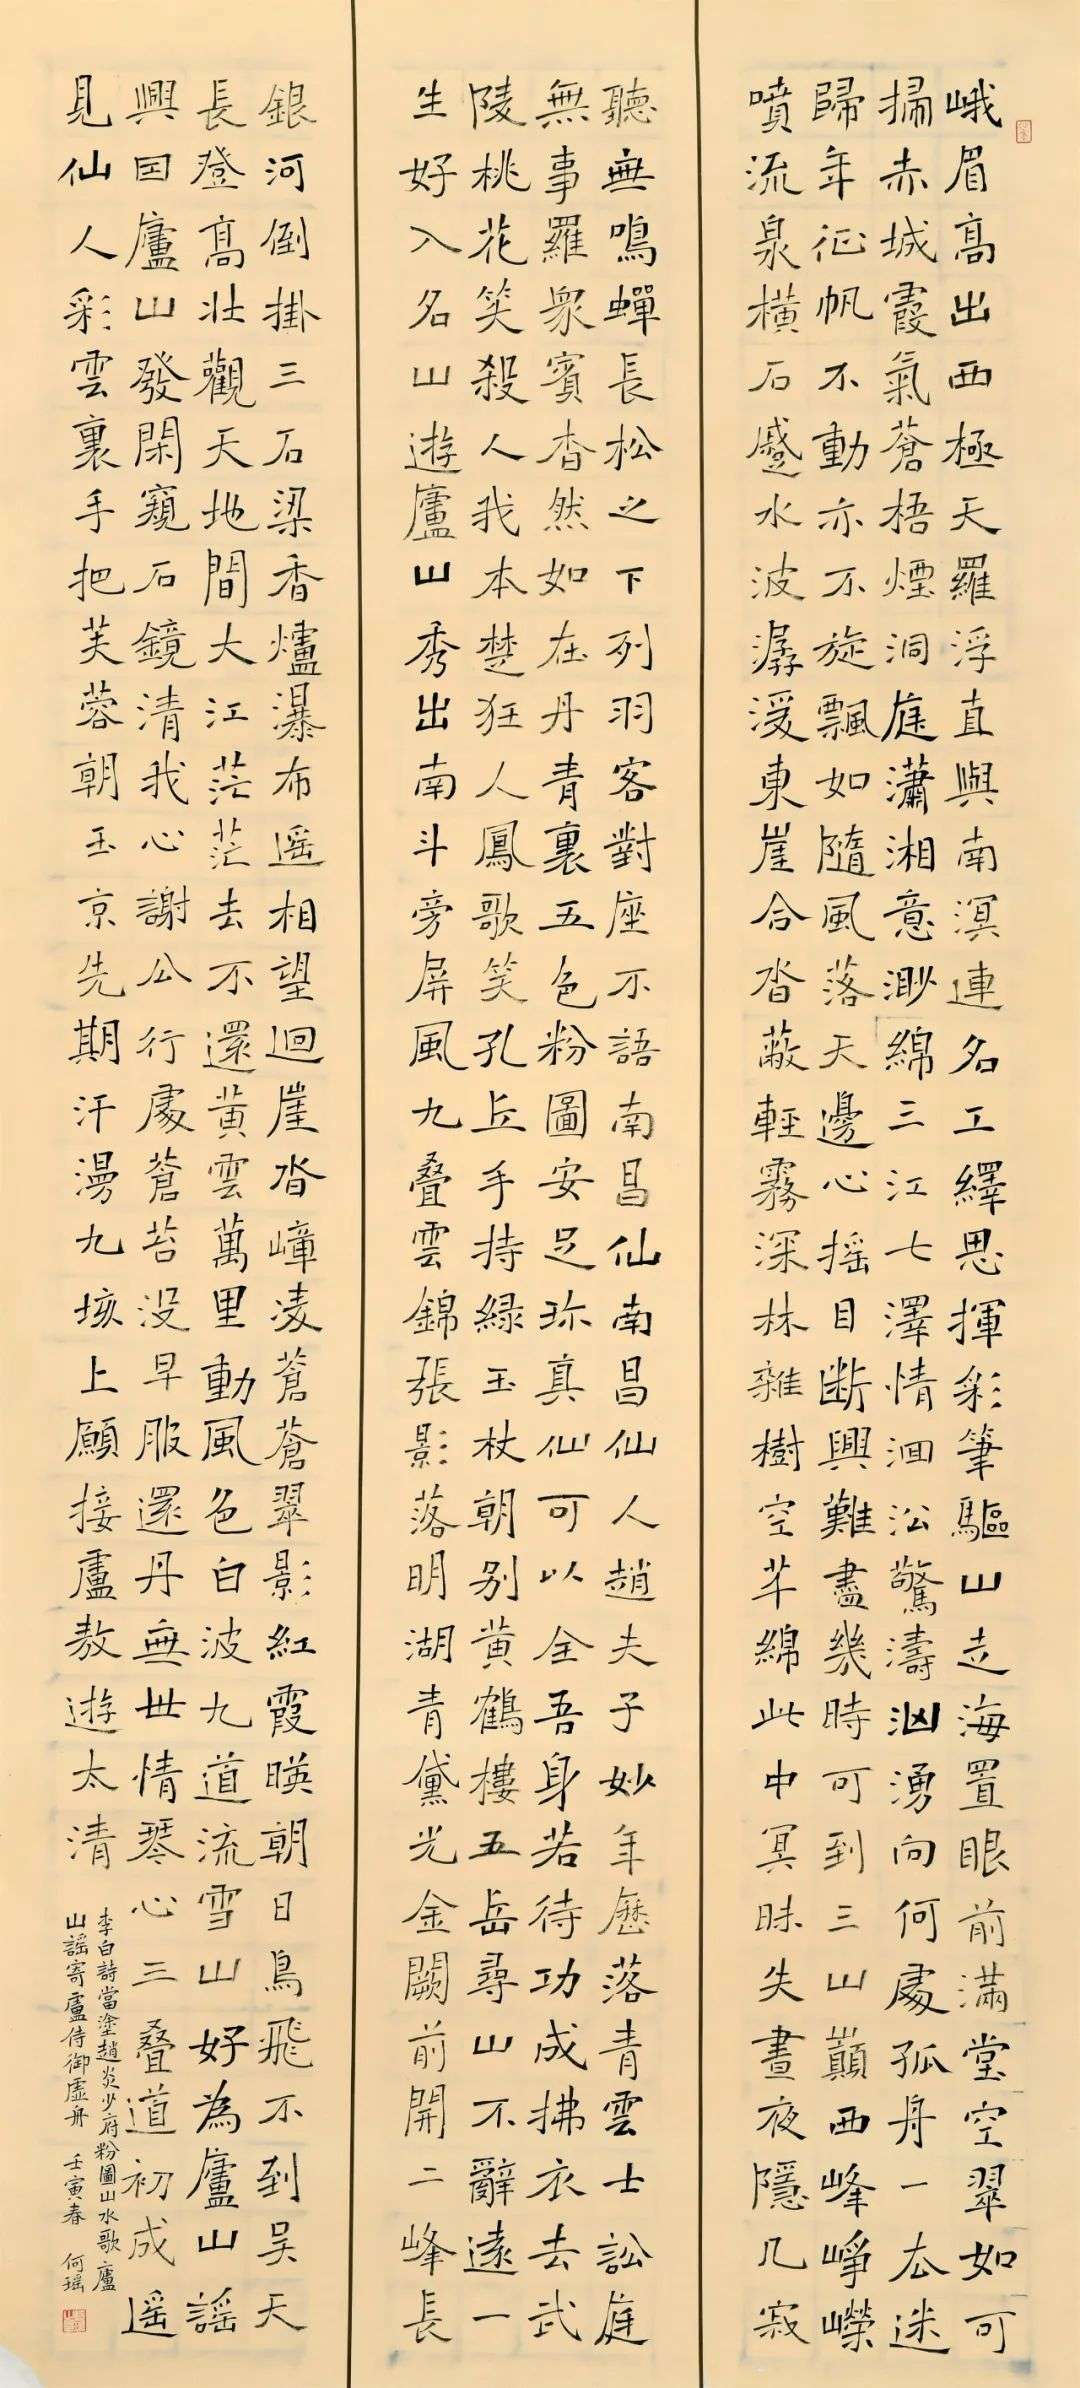 峨眉高出西極天羅浮直與南溟連名工繹思揮彩筆驅山走海置眼前滿堂空翠如可
掃赤城霞氣蒼梧煙洞庭瀟湘意渺綿三江七澤情洄沿驚濤洶湧向何處孤舟一去迷
歸年征帆不動亦不旋飄如隨風落天邊心搖目斷興難盡幾時可到三山巔西峰崢嶸
噴流泉橫石蹙水波潺湲東崖合沓蔽輕霧深林雜樹空芊綿此中冥昧失晝夜隱几寂
聽無鳴蟬長松之下列羽客對座不語南昌仙南昌仙人趙夫子妙年歷落青雲士訟庭
無事羅眾賓杳然如在丹青裏五色粉圖安足珍真仙可以全吾身若待功成拂衣去武
陵桃花笑殺人我本楚狂人鳳歌笑孔丘手持綠玉杖朝別黃鶴樓五岳尋山不辭遠一
生好入名山遊廬山秀出南斗旁屏風九叠雲錦張影落明湖青黛光金闕前開二峰長
銀河倒掛三石梁香爐瀑布遙相望迴崖沓嶂凌蒼蒼翠影紅霞暎朝日鳥飛不到吳天
長登高壯觀天地間大江茫茫去不還黃雲萬里動風色白波九道流雪山好為廬山謠
興因廬山發閑窺石鏡清我心謝公行處蒼苔沒早服還丹無世情琴心三叠道初成遙
見仙人彩雲裏手把芙蓉朝玉京先期汗漫九垓上願接盧敖遊太清
李白詩當塗趙炎少府粉圖山水歌廬
山謠寄盧侍御虛舟 壬寅春 何瑶